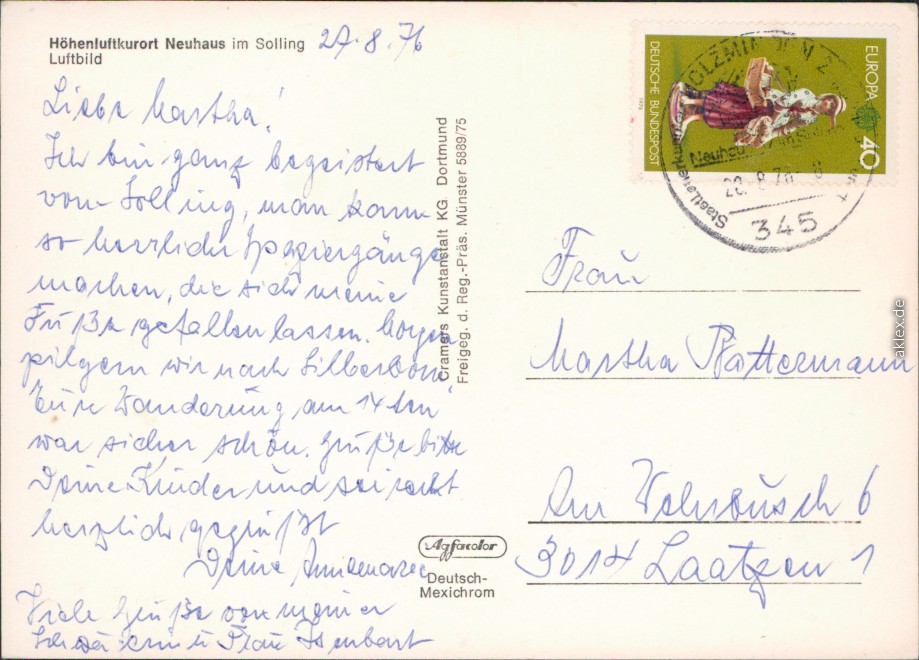 Höhenluftkurort Neuhaus im Solling
Luftbild
27.8.76
Liebe Martha!
Ich bin ganz begeistert
vom Solling, man kann
so herrliche Spaziergänge
machen, die sich meine
Füße gefallen lassen. Morgen
pilgern wir nach Silberborn.
Eure Wanderung am 14ten
war sicher schön. Grüße bitte
Deine Kinder und sei recht
herzlich gegrüßt
Deine Annemarie
Viele Grüße von meiner
Frau Isenbart
Cramers Kunstanstalt KG Dortmund
Freigeg. d. Reg.-Präs. Münster 5889/75
Agfacolor
Deutsch-
Mexichrom
DEUTSCHE BUNDESPOST
1976
EUROPA
40
HOLZMINDEN 2
Neuhaus
Staatl. anerkannter
345
Frau
Martha Plattermann
Am Wehrbusch 6
3014 Laatzen 1
aklex.de